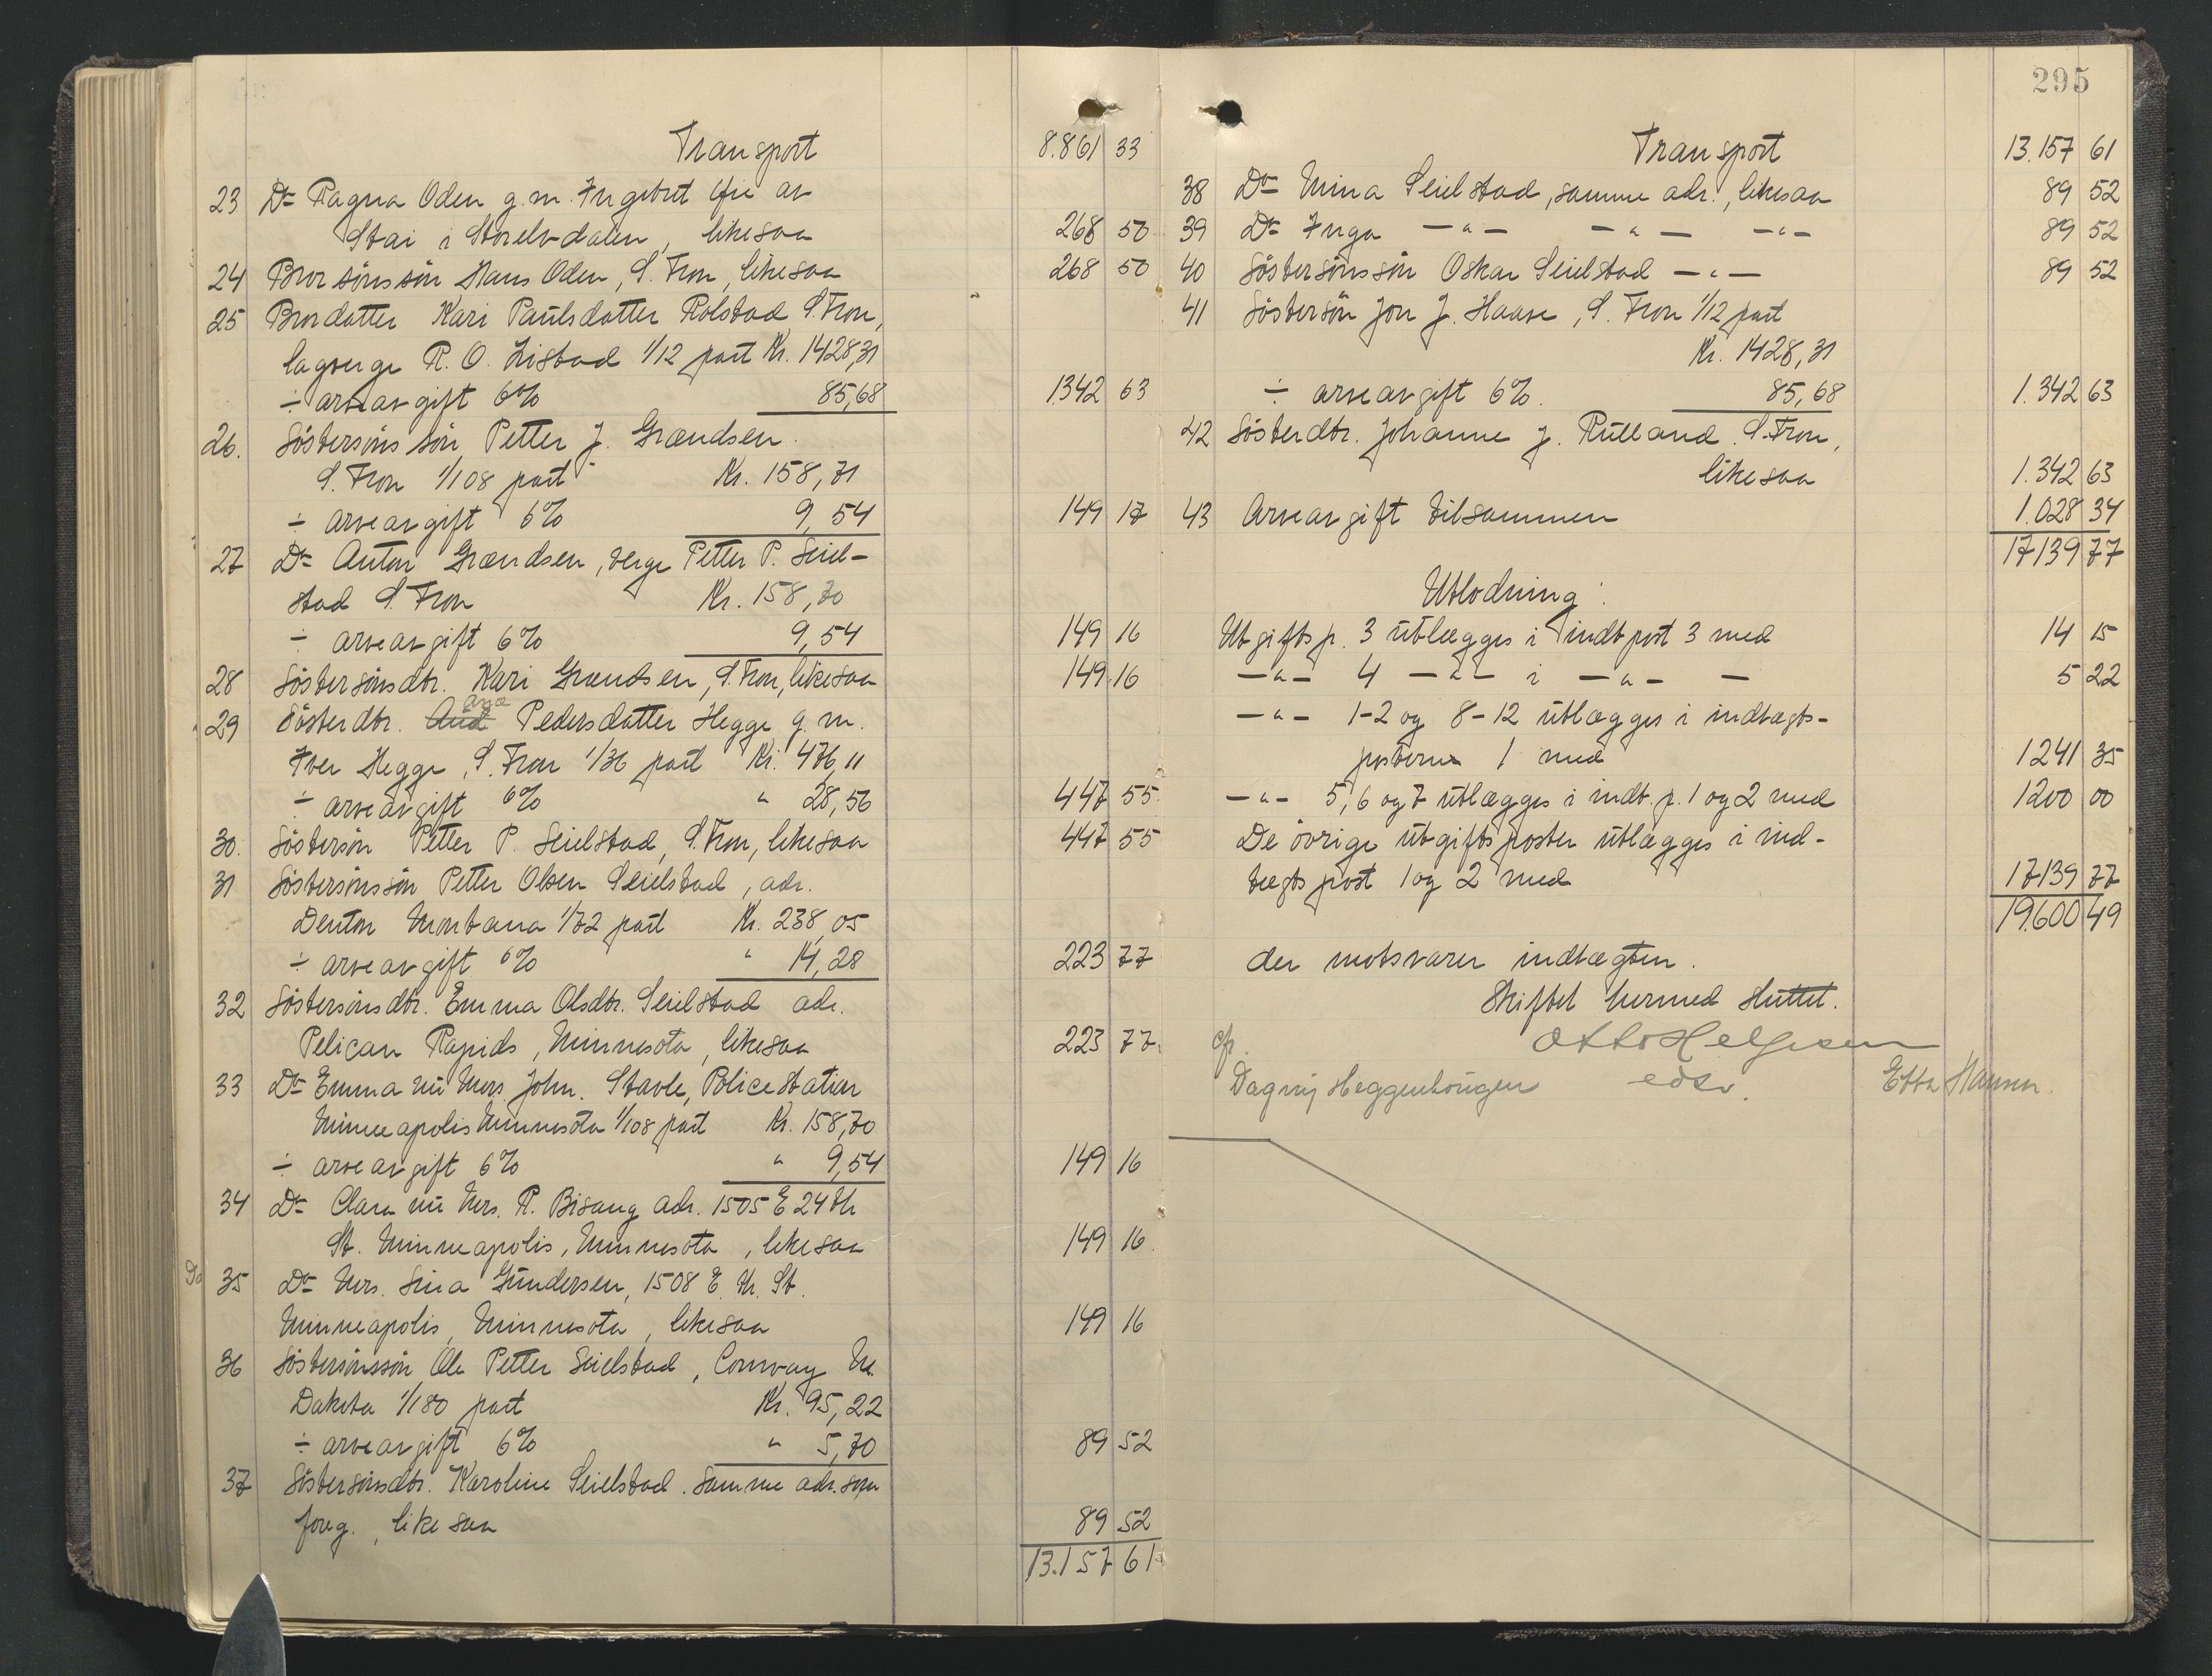 Transport 8.861 33
23 Do Ragna Oden g.m. Ingebret av
Stai i Storelvdalen, likesaa 268 50
24 Brorsönssön Hans Oden, S. Fron, likesaa 268 50
25 Brordatter Kari Paulsdatter Rolstad S. Fron,
lagverge R. O. Listad 1/12 part Kr. 1428,31
÷ arveavgift 6% 85,68 1342 63
26. Söstersöns sön Petter J. Grændsen.
S. Fron 1/108 part Kr. 158,71
÷ arveavgift 6% 9,54 149 17
27 Do Anton Grændsen, verge Petter P. Seiel-
stad S. Fron Kr. 158,70
÷ arveavgift 6% 9,54 149 16
28 Söstersönsdtr. Kari Grændsen, S. Fron, likesaa 149 16
29 Sösterdtr. Aud ana Pedersdatter Hegge g.m.
Iver Hegge, S. Fron 1/36 part Kr. 476,11
÷ arveavgift 6% " 28,56 447 55
30. Söstersön Petter P. Seielstad, S. Fron, likesaa 447 55
31 Söstersönssön Petter Olsen Seielstad, adr.
Denton Montana 1/72 part Kr. 238,05
÷ arveavgift 6% " 14,28 223 77
32 Söstersönsdtr. Emma Olsdtr. Seielstad adr.
Pelican Rapids, Minnesota, likesaa 223 77
33 Do Emma nu Mrs. John. Stavle, Police Station
Minneapolis Minnesota 1/108 part Kr. 158,70
÷ arveavgift 6% " 9,54 149 16
34 Do Clara nu Mrs. R. Bisang adr. 1505 E 24th
St. Minneapolis, Minnesota, likesaa 149 16
Do 35 Do Mrs. Sina Gundersen, 1508 E. St.
Minneapolis, Minnesota, likesaa 149 16
36 Söstersönssön Ole Petter Seielstad, Conway N.
Dakota 1/180 part Kr. 95,22
÷ arveavgift 6% " 5,70 89 52
37 Söstersönsdtr. Karoline Seielstad. Samme adr. som
foreg., likesaa 89 52
13.157 61
295
Transport 13.157 61
38 Do Mina Seielstad, samme adr., likesaa 89 52
39 Do Inga —"— —"— —"— 89 52
40 Söstersönssön Oskar Seielstad —"— 89 52
41 Söstersön Jon J. Haave, S. Fron 1/12 part
Kr. 1428,31
÷ arveavgift 6%. 85,68 1.342 63
42 Sösterdtr. Johanne J. Rulland S. Fron,
likesaa 1.342 63
43 Arveavgift tilsammen 1.028 34
17139 77
Utlodning:
Utgiftsp. 3 utlægges i indt post 3 med 14 15
—"— 4 —"— i —"— — 5 22
—"— 1-2 og 8-12 utlægges i indtægts-
posterne 1 med 1241 35
—"— 5, 6 og 7 utlægges i indt. p. 1 og 2 med 1200 00
De övrige utgiftsposter utlægges i ind-
tægtspost 1 og 2 med 17139 77
19.600 49
der motsvarer indtægten.
Skiftet hermed sluttet.
Otto Helgesen
cfr.
Dagny Heggenhougen edsv. Etta Hansen.